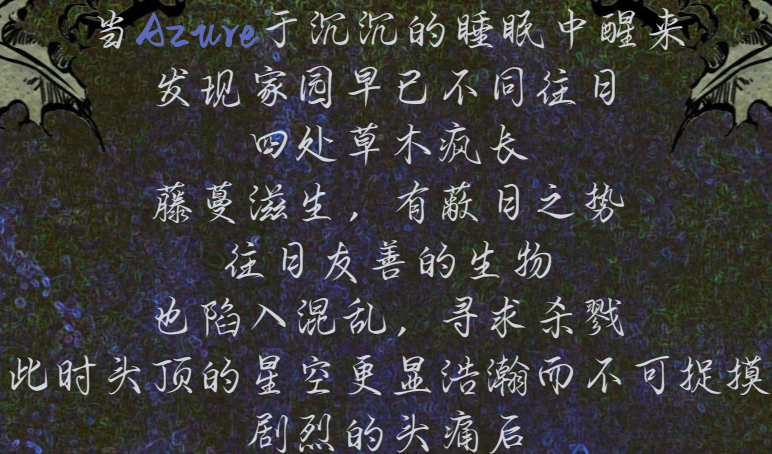 当Azure于沉沉的睡眠中醒来
发现家园早已不同往日
四处草木疯长
藤蔓滋生，有蔽日之势
往日友善的生物
也陷入混乱，寻求杀戮
此时头顶的星空更显浩瀚而不可捉摸
剧烈的头痛后